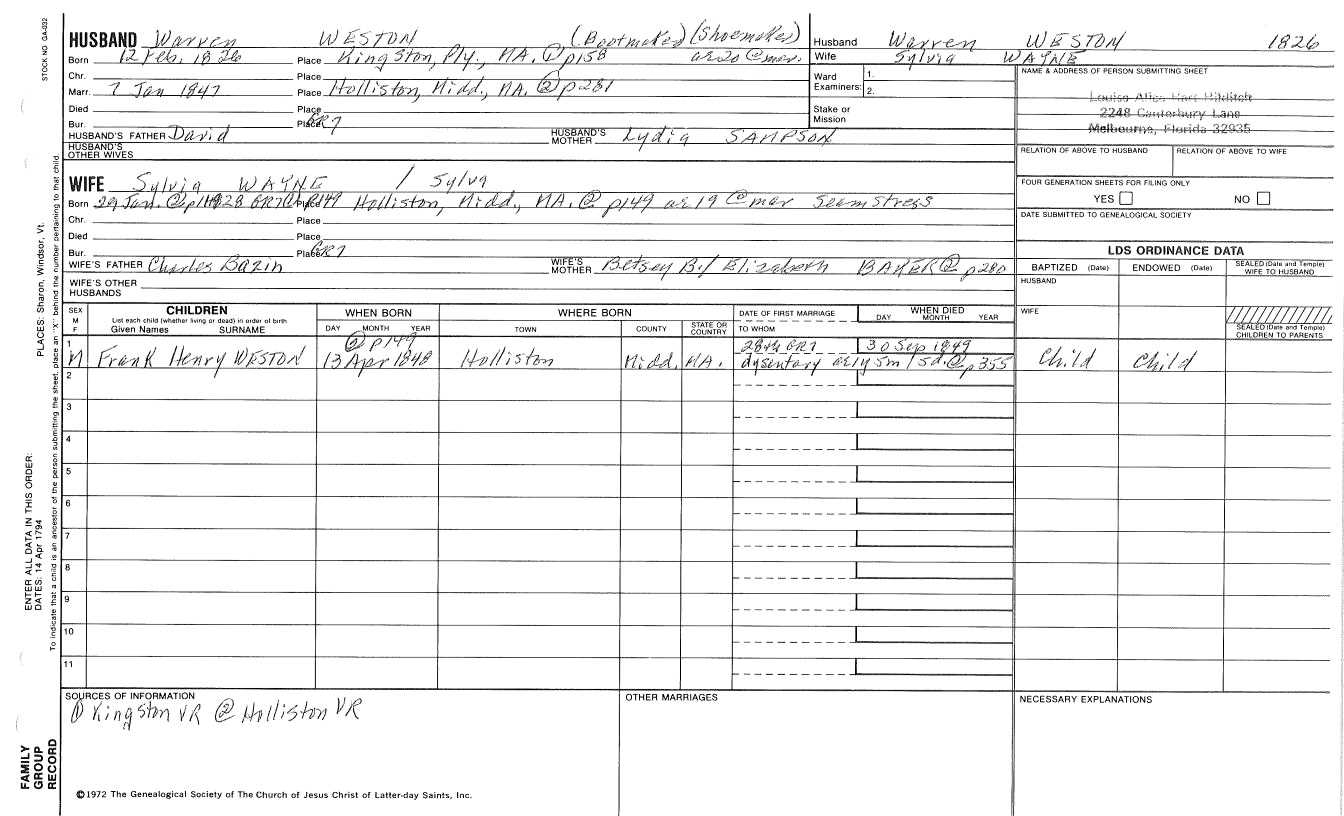 STOCK NO. GA-032
HUSBAND Warren WESTON (Bootmaker) (Shoemaker)
Born 12 Feb. 1826 Place Kingston, Ply., MA. ① p158 ae20 @ mar.
Chr. Place
Marr. 7 Jan 1847 Place Holliston, Midd., MA. ② p281
Died Place
Bur. Place GR7
HUSBAND'S FATHER David HUSBAND'S MOTHER Lydia SAMPSON
HUSBAND'S OTHER WIVES
WIFE Sylvia WAYNE / Sylva
Born 29 Jan. 1828 GR7 Place Holliston, Midd., MA. ② p149 ae19 @ mar Seamstress
Chr. Place
Died Place
Bur. Place GR7
WIFE'S FATHER Charles Bazin WIFE'S MOTHER Betsey B./ Elizabeth BAKER ② p280
WIFE'S OTHER HUSBANDS
Husband Warren WESTON 1826
Wife Sylvia WAYNE
Ward 1.
Examiners: 2.
Stake or Mission
NAME & ADDRESS OF PERSON SUBMITTING SHEET
2248 Canterbury Lane
Melbourne, Florida 32935
RELATION OF ABOVE TO HUSBAND RELATION OF ABOVE TO WIFE
FOUR GENERATION SHEETS FOR FILING ONLY
YES NO
DATE SUBMITTED TO GENEALOGICAL SOCIETY
LDS ORDINANCE DATA
BAPTIZED (Date) ENDOWED (Date) SEALED (Date and Temple) WIFE TO HUSBAND
HUSBAND
WIFE
SEALED (Date and Temple) CHILDREN TO PARENTS
SEX M F
CHILDREN
List each child (whether living or dead) in order of birth
Given Names SURNAME
WHEN BORN
DAY MONTH YEAR
WHERE BORN
TOWN COUNTY STATE OR COUNTRY
DATE OF FIRST MARRIAGE
TO WHOM
WHEN DIED
DAY MONTH YEAR
② p149 GR7 30 Sep 1849
1 M Frank Henry WESTON 13 Apr 1848 Holliston Midd. MA. dysentary ae1y 5m 15d. ② p355 Child Child
2
3
4
5
6
7
8
9
10
11
SOURCES OF INFORMATION
① Kingston VR ② Holliston VR
OTHER MARRIAGES
NECESSARY EXPLANATIONS
©1972 The Genealogical Society of The Church of Jesus Christ of Latter-day Saints, Inc.
ENTER ALL DATA IN THIS ORDER:
DATES: 14 Apr 1794
PLACES: Sharon, Windsor, Vt.
To indicate that a child is an ancestor of the person submitting the sheet, place an "X" behind the number pertaining to that child.
FAMILY GROUP RECORD